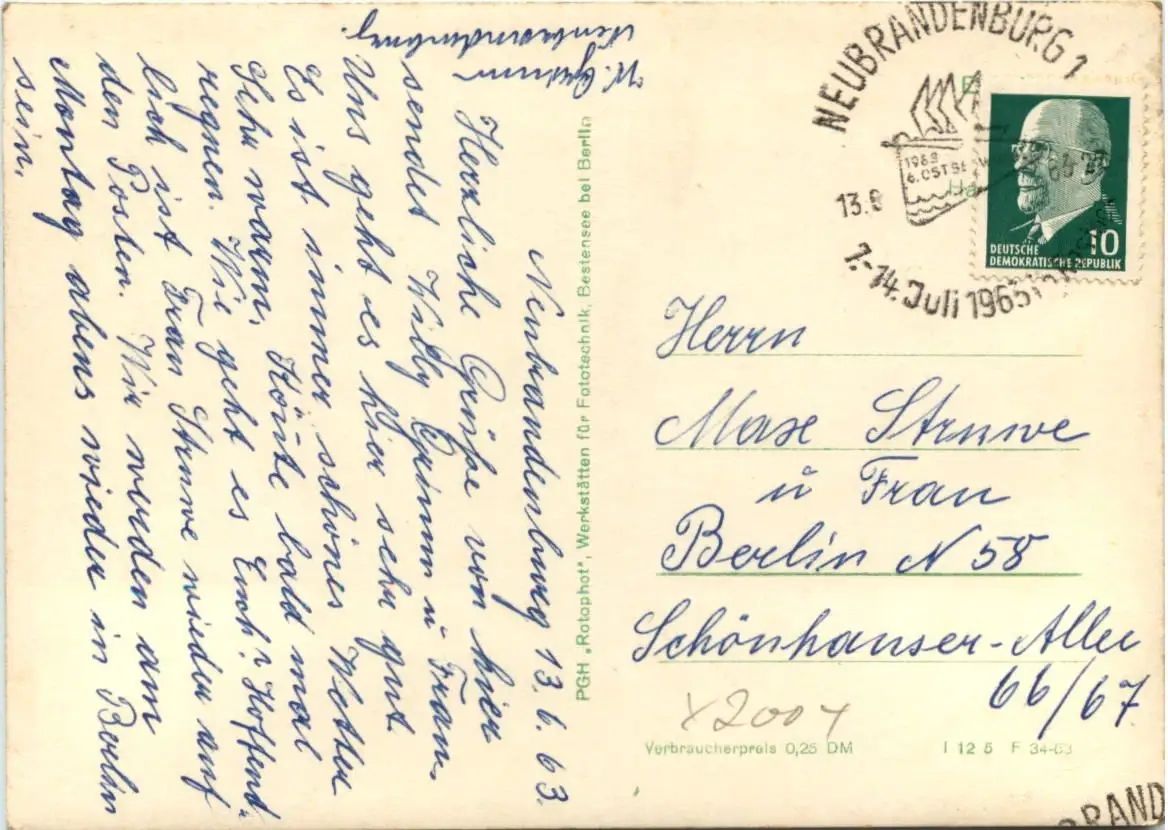 Neubrandenburg 13.6.63.
Herzliche Grüße von hier
sendet Willy Grimm ü Frau.
Uns geht es hier sehr gut.
Es ist immer schönes Wetter
Sehr warm. Könte bald mal
regnen. Wie geht es Euch? Hoffent-
lich ist Frau Struwe wieder auf
den Posten. Wir werden am
Montag abens wieder in Berlin
sein.
W. Grimm
Neubrandenburg.
PGH „Rotophot", Werkstätten für Fototechnik, Bestensee bei Berlin
NEUBRANDENBURG 1
1963
6. OSTSE
13.6
7.-14. Juli 1963
DEUTSCHE
DEMOKRATISCHE REPUBLIK
10
Herrn
Max Struwe
ü Frau
Berlin N 58
Schönhauser-Allee
66/67
X2004
Verbraucherpreis 0,25 DM
I 12 5 F 34-63
BRAND